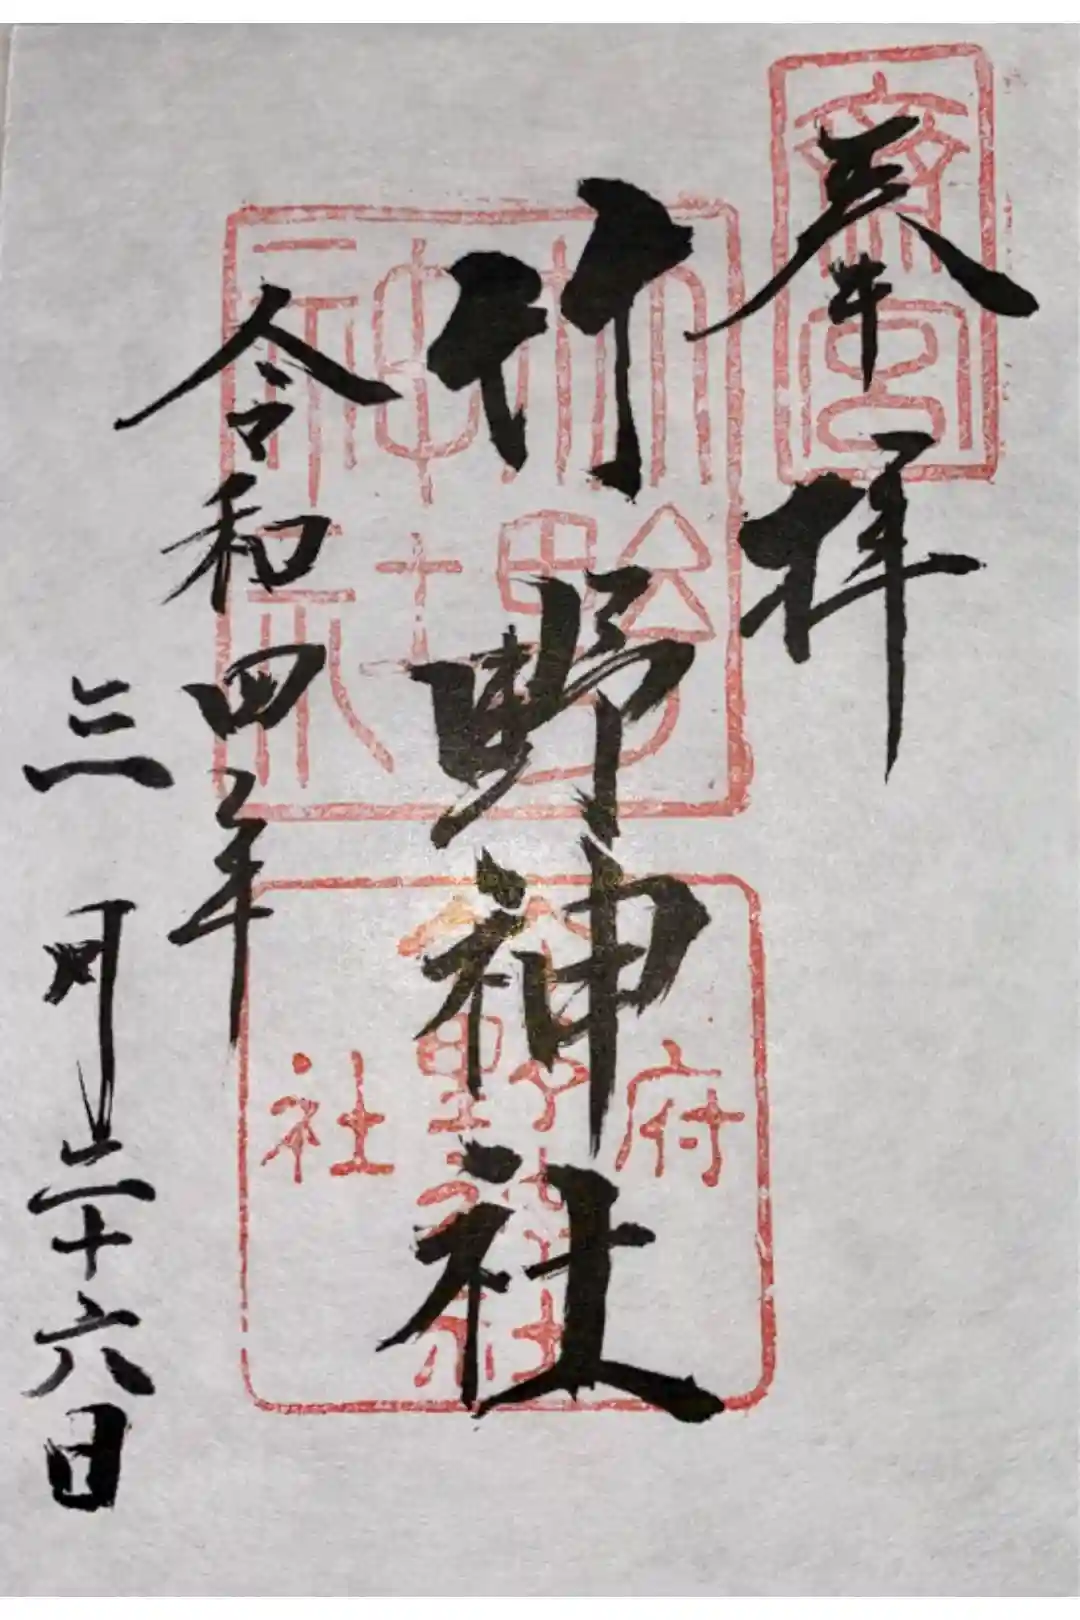 奉拝
齋宮
竹野神社
竹野
神社
府
竹野神社
社
令和四年
三月二十六日